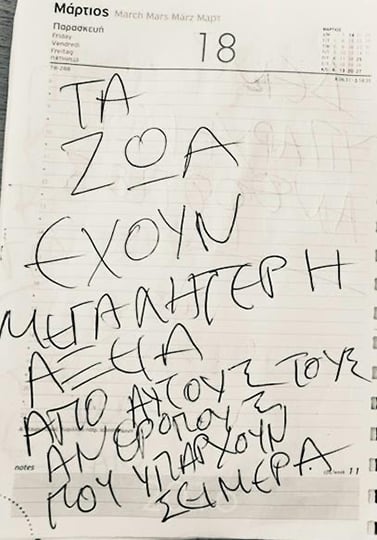 Μάρτιος March Mars März Март
Παρασκευή
Friday
Vendredi
Freitag
18
ΤΑ
ΖΩΑ
ΕΧΟΥΝ
ΜΕΓΑΛΗΤΕΡΗ
ΑΞΕΙΑ
ΑΠΟ ΑΥΤΟΥΣ ΤΟΥΣ
ΑΝΘΡΟΠΟΥΣ
ΠΟΥ ΥΠΑΡΧΟΥΝ
ΣΕΙΜΕΡΑ
notes
11